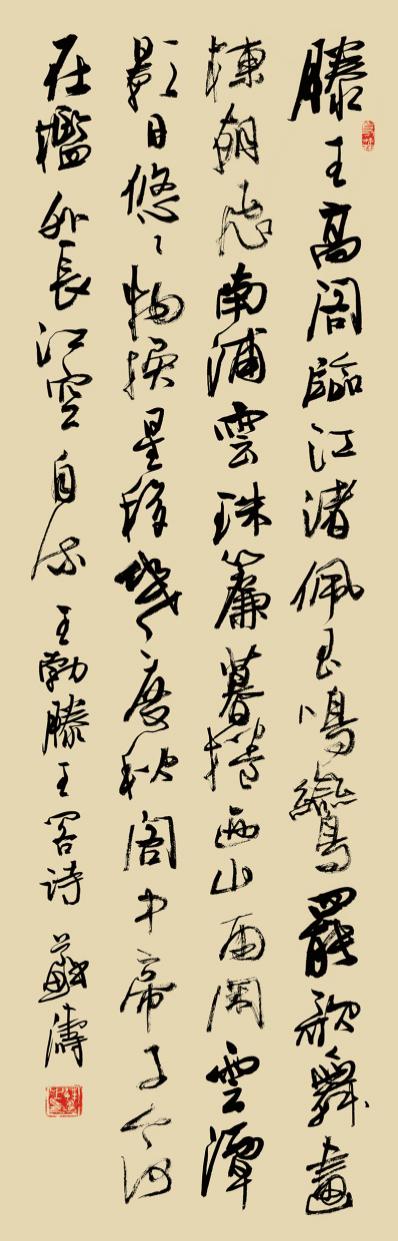 滕王高閣臨江渚佩玉鳴鸞罷歌舞畫
棟朝飛南浦雲珠簾暮捲西山雨閑雲潭
影日悠〻物換星移幾度秋閣中帝子今何
在檻外長江空自流 王勃滕王閣詩 蘇濤